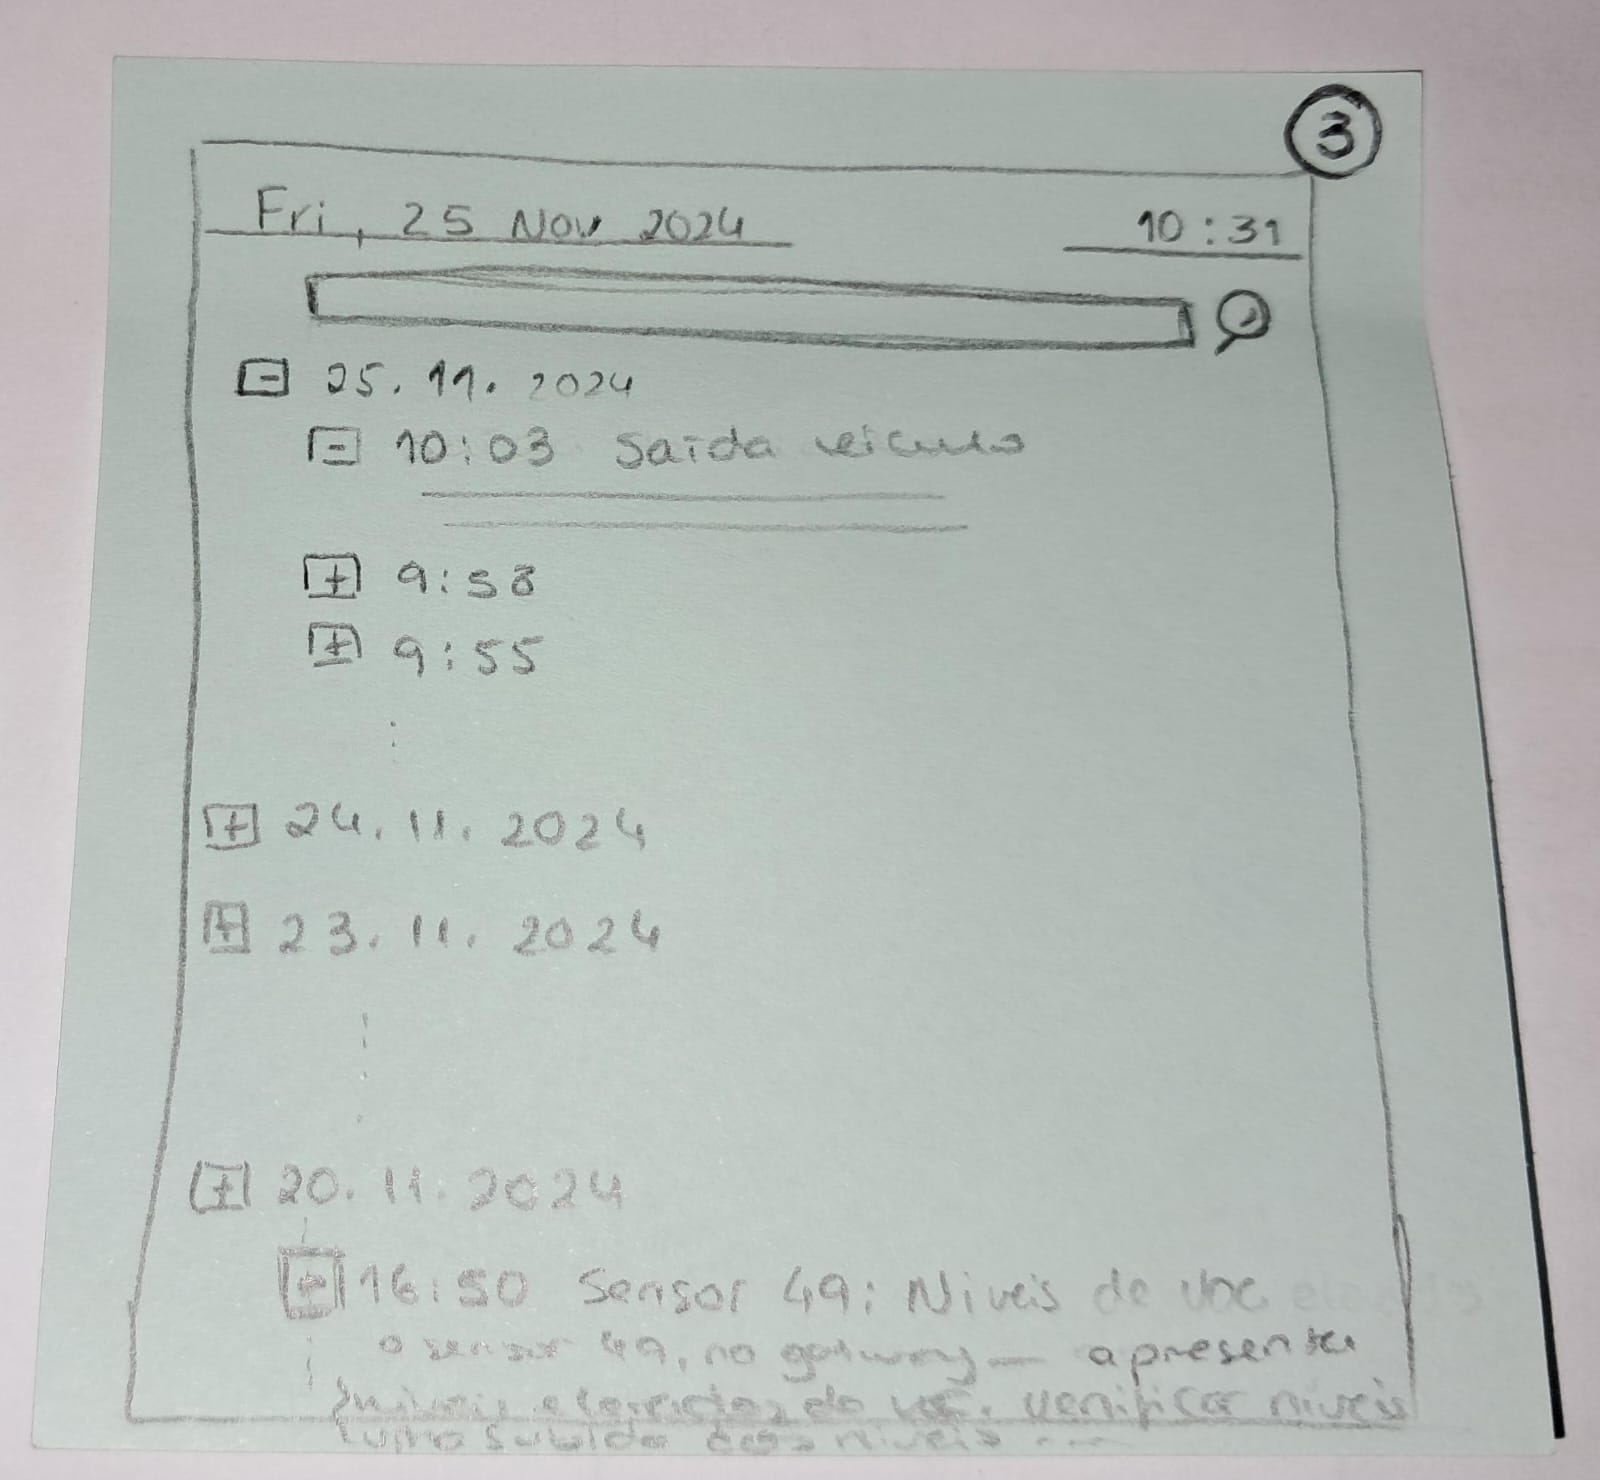 3
Fri, 25 Nov 2024 10:31
- 25.11.2024
- 10:03 Saída veículo
+ 9:58
+ 9:55
+ 24.11.2024
+ 23.11.2024
+ 20.11.2024
16:50 Sensor 49: Niveis de voc
o sensor 49, no gateway — apresenta
niveis elevados de voc. verificar niveis
subida dos niveis ...